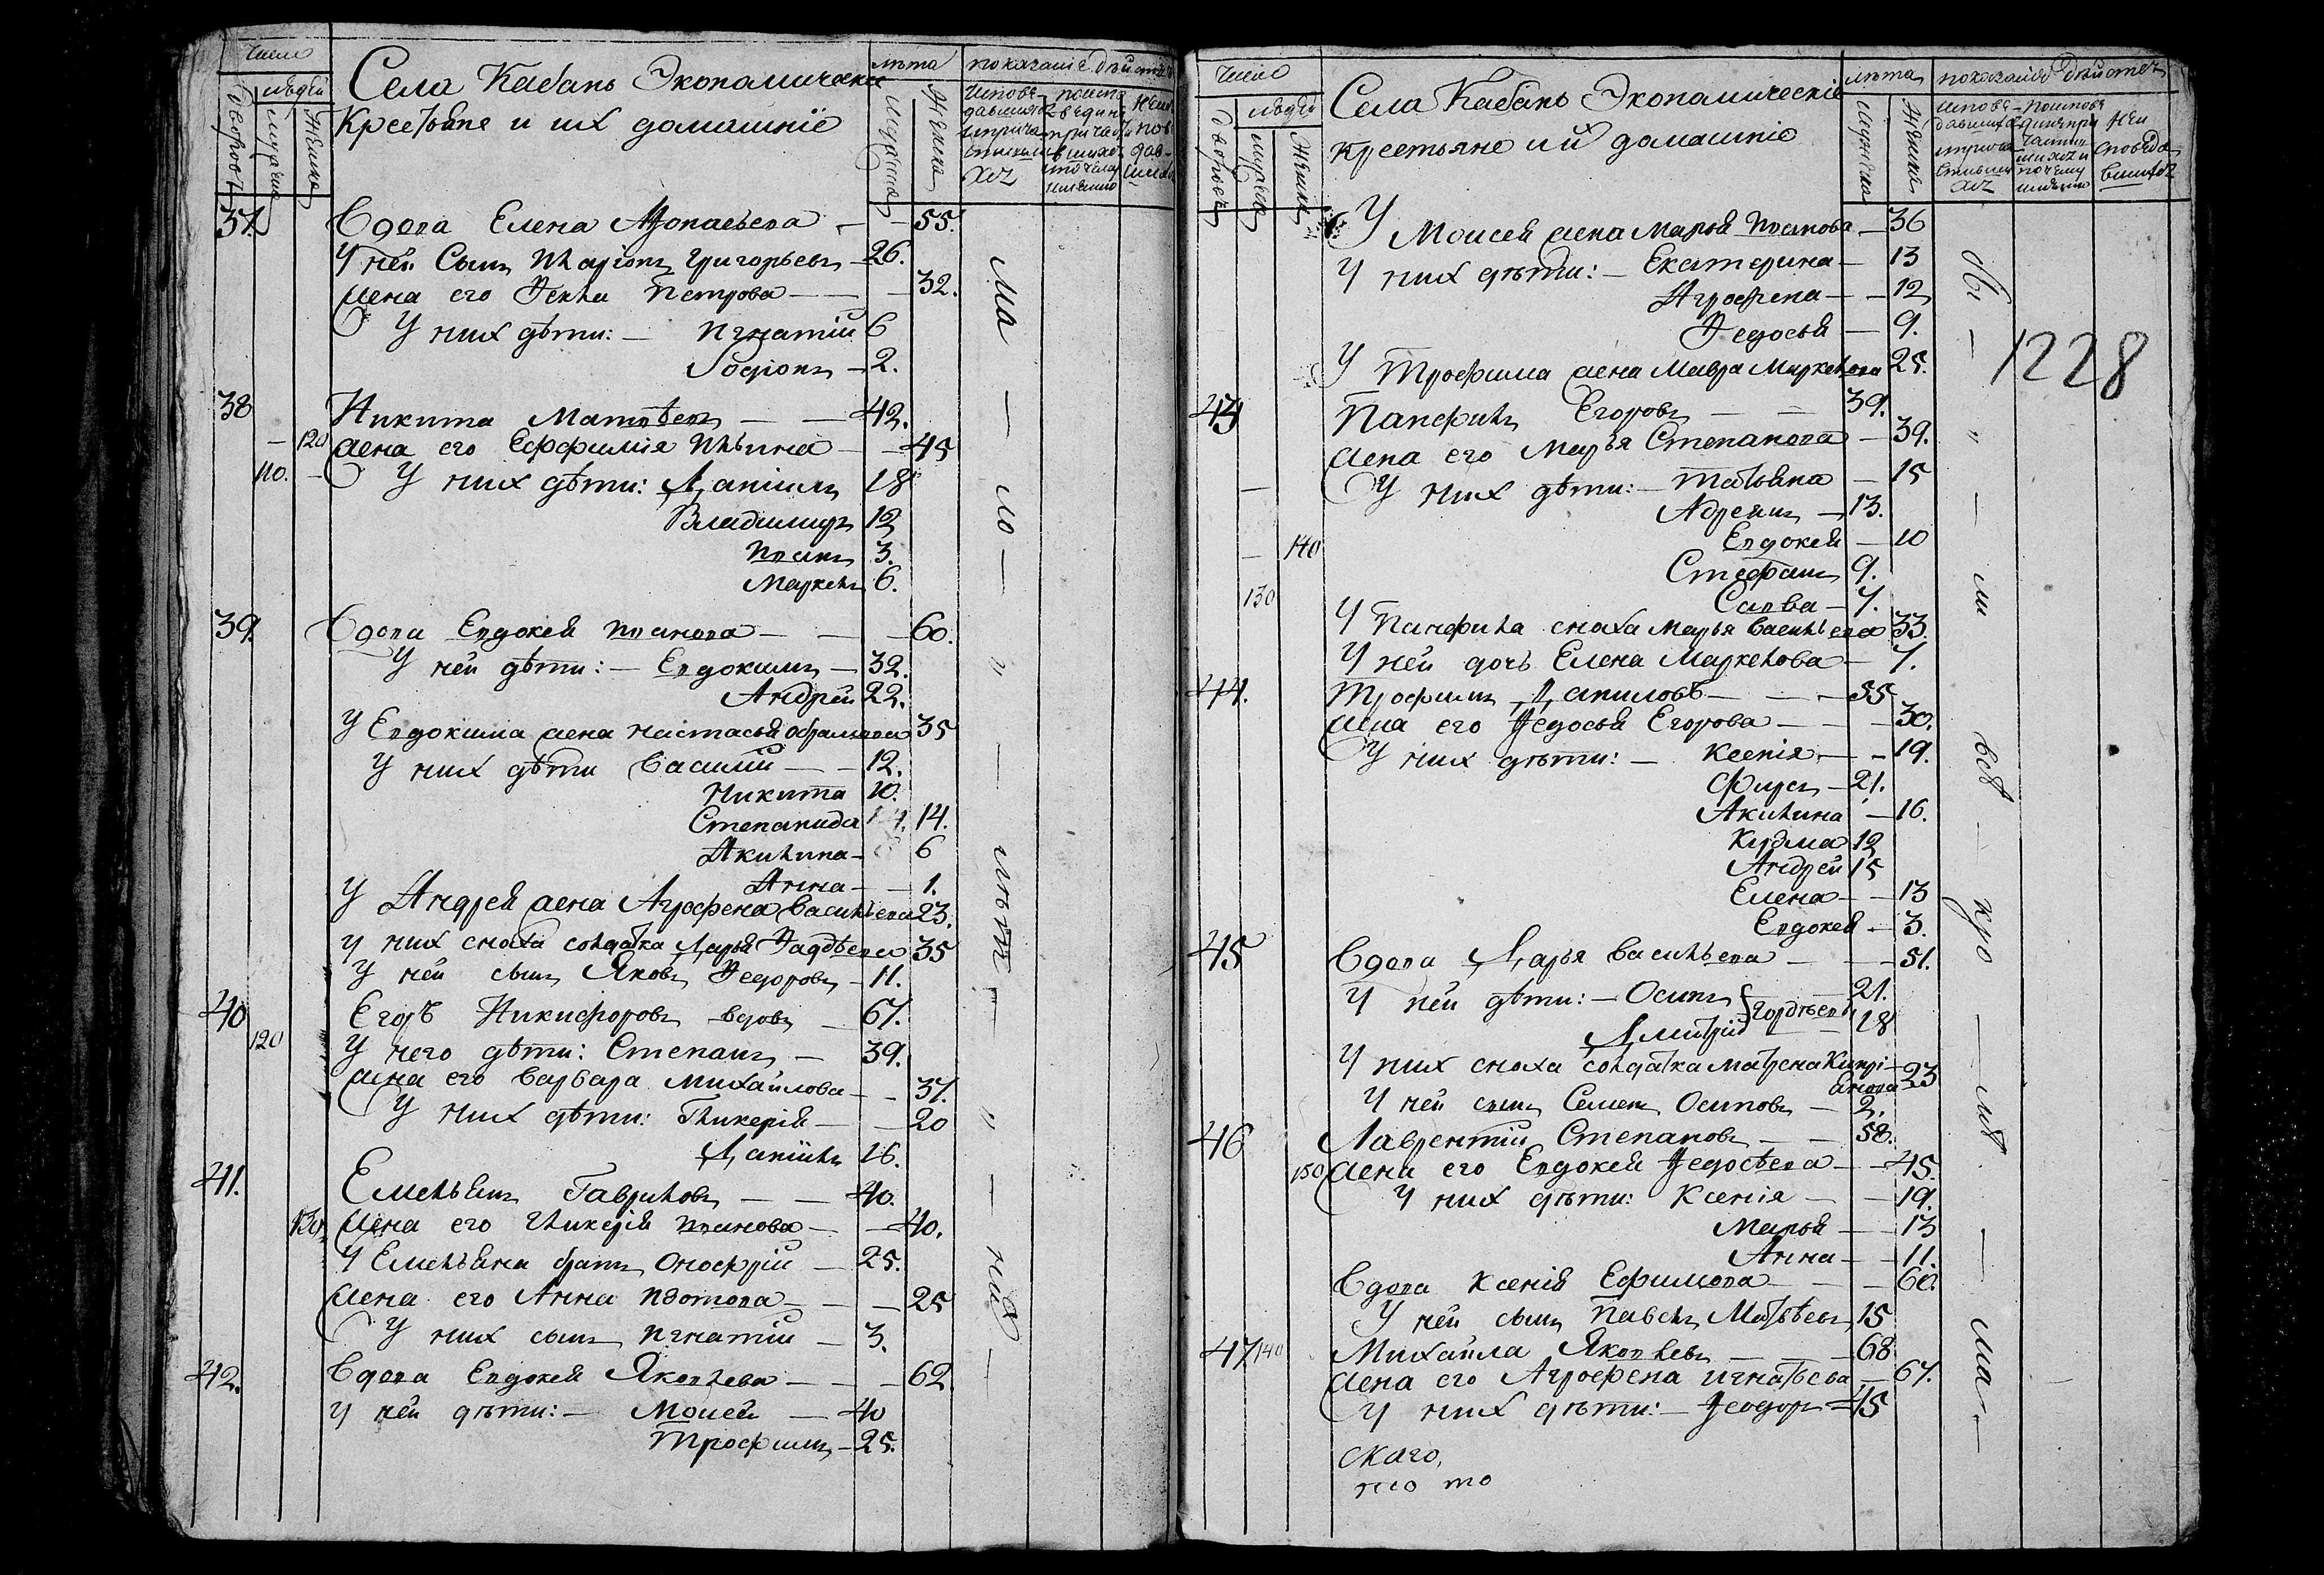 Число
людей
дворовъ
мужеска
женска
Села Кабань Экономическіе
Крестьяне и их домашніе
лѣта
мужеска
женска
показаніе дѣйства
37.
Вдова Елена
55.
У ней Сынъ Иларіонъ Григорьевъ 26.
жена его Фекла Петрова 32.
У них дѣти: Игнатій 6
Родіонъ 2.
38
Никита Матвѣевъ 42.
120 жена его Еффимія Ильина 45
110. У них дѣти: Даніилъ 18
Владимиръ 12
Иванъ 3.
Маркелъ 6.
39. Вдова Евдокея Иванова 60.
У ней дѣти: Евдокимъ 32.
Андрей 22.
У Евдокима жена Настасья Абрамова 35
У них дѣти Василий 12.
Никита 10.
Степанида 14.
Акилина 6
Анна 1.
У Андрея жена Агрофена Васильева 23.
У них сноха солдатка Дарья Фадѣева 35
У ней сынъ Яковъ Федоровъ 11.
40 Егоръ Никифоровъ вдовъ 67.
120 У него дѣти: Степанъ 39.
жена его Варвара Михайлова 37.
У них дѣти: Гликерія 20
Даніилъ 16.
41. Емельянъ Гавриловъ 40.
130 жена его Гликерія Иванова 40.
У Емельяна братъ Онофрій 25.
жена его Анна Изотова 25
У них сынъ Игнатій 3.
42. Вдова Евдокея Яковлева 62.
У ней дѣти: Моисей 40
Трофимъ 25.
Число
людей
дворовъ
мужеска
женска
Села Кабань Экономическіе
крестьяне и их домашніе
лѣта
мужеска
женска
показаніе дѣйства
У Моисея жена Марья Иванова 36
У них дѣти: Екатерина 13
Агрофена 12
Федосья 9.
1228
У Трофима жена Мавра Маркелова 25.
43 Панфилъ Егоровъ 39.
жена его Марья Степанова 39.
У них дѣти: Татьяна 15
Адреянъ 13.
140 Евдокея 10
Стефанъ 9.
130 Савва 7.
У Панфила сноха Марья Васильева 33.
У ней дочь Елена Маркелова 7.
44. Трофимъ Даниловъ 55
жена его Федосья Егорова 30.
У них дѣти: Ксенія 19.
Фирсъ 21.
Акилина 16.
Кузма 12
Андрей 15
Елена 13
Евдокея 3.
45 Вдова Дарья Васильева 51.
У ней дѣти: Осипъ 21.
Гордѣевы
Дмитрій 18
У них сноха солдатка Матрена Кипрі-
янова 23
У ней сынъ Семенъ Осиповъ 2.
46 Лаврентій Степановъ 58.
150 жена его Евдокея Федосѣева 45.
У них дѣти: Ксенія 19.
Марья 13
Анна 11.
Вдова Ксенія Ефимова 60.
У ней сынъ Павелъ Матвѣевъ 15
47 140 Михайла Яковлевъ 68
жена его Агрофена Игнатьева 67.
У них дѣти: Феодоръ 45
скаго,
что то